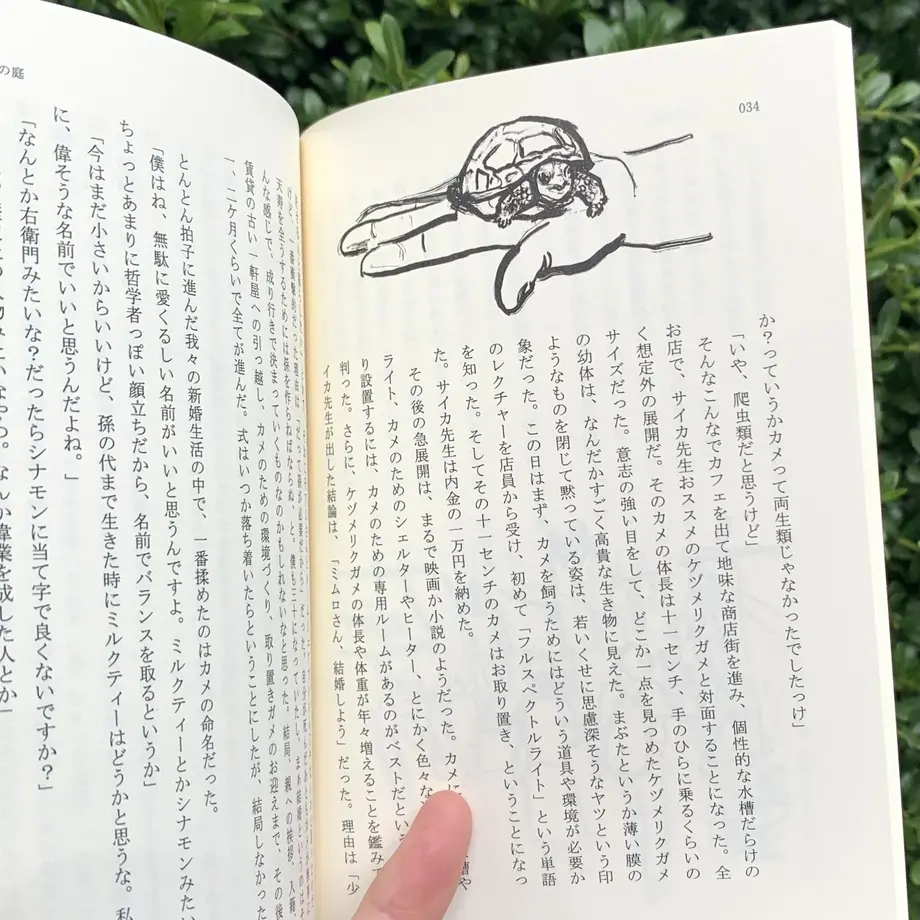 034
か？っていうかカメって両生類じゃなかったでしたっけ」
「いや、爬虫類だと思うけど」
そんなこんなでカフェを出て地味な商店街を進み、個性的な水槽だらけの
お店で、サイカ先生おススメのケヅメリクガメと対面することになった。全
く想定外の展開だ。そのカメの体長は十一センチ、手のひらに乗るくらいの
サイズだった。意志の強い目をして、どこか一点を見つめたケヅメリクガメ
の幼体は、なんだかすごく高貴な生き物に見えた。まぶたというか薄い膜の
ようなものを閉じて黙っている姿は、若いくせに思慮深そうなヤツという印
象だった。この日はまず、カメを飼うためにはどういう道具や環境が必要か
のレクチャーを店員から受け、初めて「フルスペクトルライト」という単語
を知った。そしてその十一センチのカメはお取り置き、ということになっ
た。サイカ先生は内金の一万円を納めた。
その後の急展開は、まるで映画か小説のようだった。カメに
ライト、カメのためのシェルターやヒーター、とにかく色々な
り設置するには、カメのための専用ルームがあるのがベストだという
判った。さらに、ケヅメリクガメの体長や体重が年々増えることを鑑みて
イカ先生が出した結論は、「ミムロさん、結婚しよう」だった。理由は「少
天寿を全うするためには孫を作らねばならぬ、と。僕も三十になっていたし、まあ結婚というのはそ
んな感じで、成り行きで決まっていくものなのかもしれないなと思った。結局、親への挨拶、入籍
賃貸の古い一軒屋への引っ越し、カメのための環境づくり、取り置きガメのお迎えまで、その後
一、二ヶ月くらいで全てが進んだ。式はいつか落ち着いたらということにしたが、結局しなかった
の庭
とんとん拍子に進んだ我々の新婚生活の中で、一番揉めたのはカメの命名だった。
「僕はね、無駄に愛くるしい名前がいいと思うんですよ。ミルクティーとかシナモンみたい
ちょっとあまりに哲学者っぽい顔立ちだから、名前でバランスを取るというか」
「今はまだ小さいからいいけど、孫の代まで生きた時にミルクティーはどうかと思うな。私
に、偉そうな名前でいいと思うんだよね。」
「なんとか右衛門みたいな？だったらシナモンに当て字で良くないですか？」
なんか偉業を成した人とか」